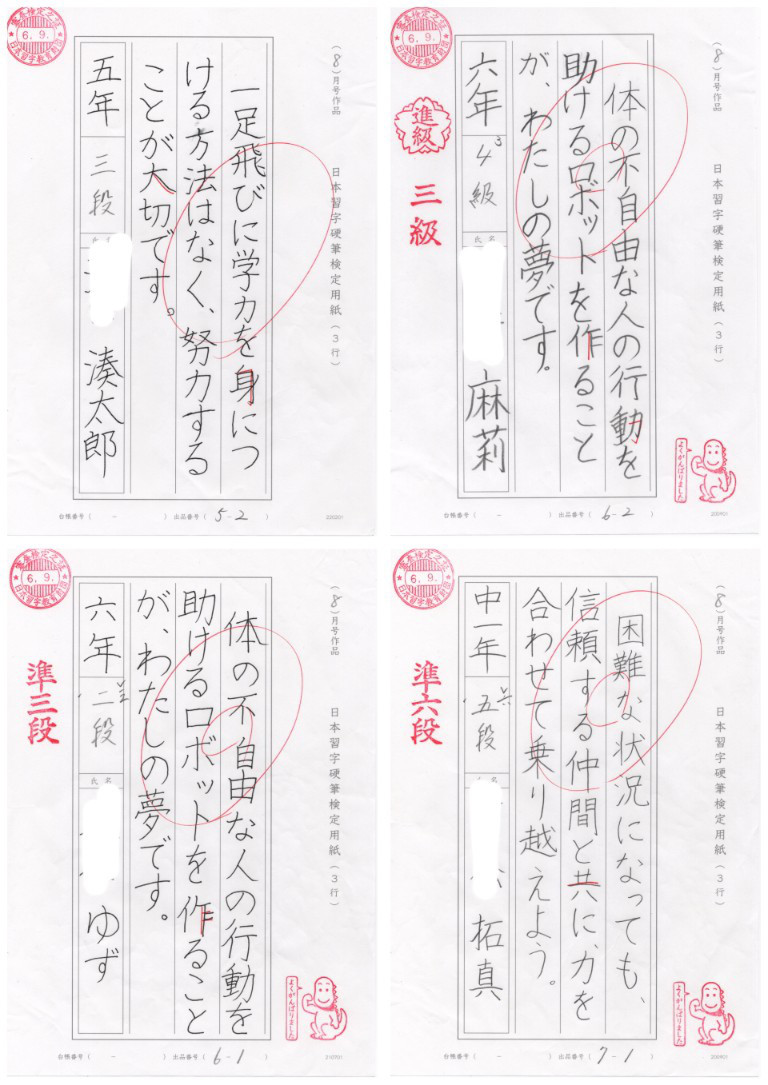 審査検定之証
6.9.
日本習字教育財団
(8)月号作品
日本習字硬筆検定用紙(3行)
一足飛びに学力を身につ
ける方法はなく、努力する
ことが大切です。
五年
三段
氏名
湊太郎
台帳番号( - )
出品番号(5-2)
審査検定之証
6.9.
日本習字教育財団
進級
三級
(8)月号作品
日本習字硬筆検定用紙(3行)
体の不自由な人の行動を
助けるロボットを作ること
が、わたしの夢です。
六年
4級
氏名
麻莉
よくがんばりました
台帳番号( - )
出品番号(6-2)
審査検定之証
6.9.
日本習字教育財団
準三段
(8)月号作品
日本習字硬筆検定用紙(3行)
体の不自由な人の行動を
助けるロボットを作ること
が、わたしの夢です。
六年
二段
氏名
ゆず
よくがんばりました
台帳番号( - )
出品番号(6-1)
審査検定之証
6.9.
日本習字教育財団
準六段
(8)月号作品
日本習字硬筆検定用紙(3行)
困難な状況になっても、
信頼する仲間と共に、力を
合わせて乗り越えよう。
中一年
五段
氏名
拓真
よくがんばりました
台帳番号( - )
出品番号(7-1)